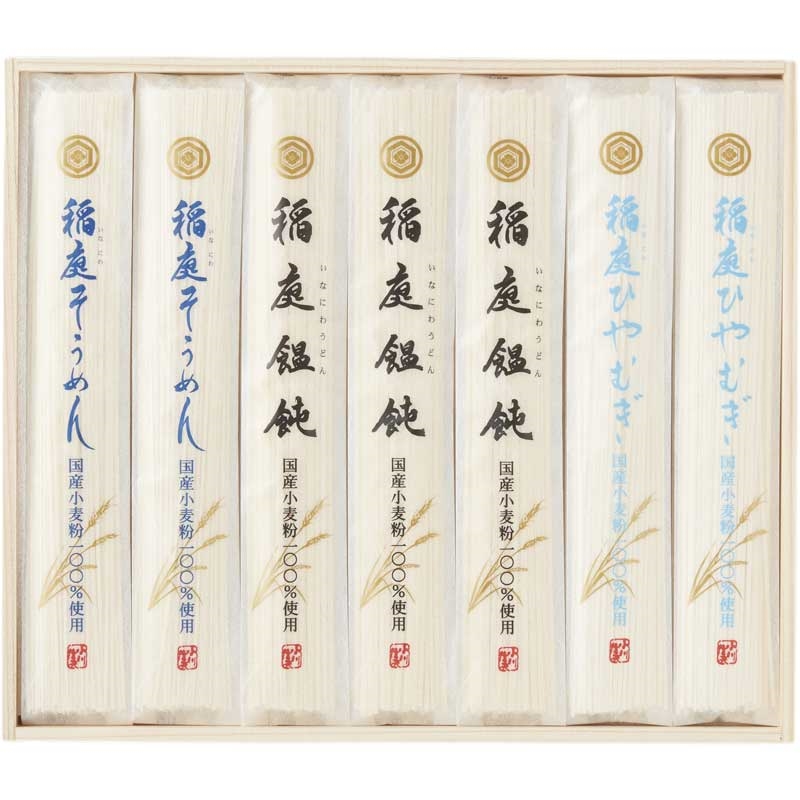 稲庭そうめん
いなにわ
国産小麦粉一〇〇%使用
稲庭そうめん
いなにわ
国産小麦粉一〇〇%使用
稲庭饂飩
いなにわうどん
国産小麦粉一〇〇%使用
稲庭饂飩
いなにわうどん
国産小麦粉一〇〇%使用
稲庭饂飩
いなにわうどん
国産小麦粉一〇〇%使用
稲庭ひやむぎ
いなにわ
国産小麦粉一〇〇%使用
稲庭ひやむぎ
いなにわ
国産小麦粉一〇〇%使用